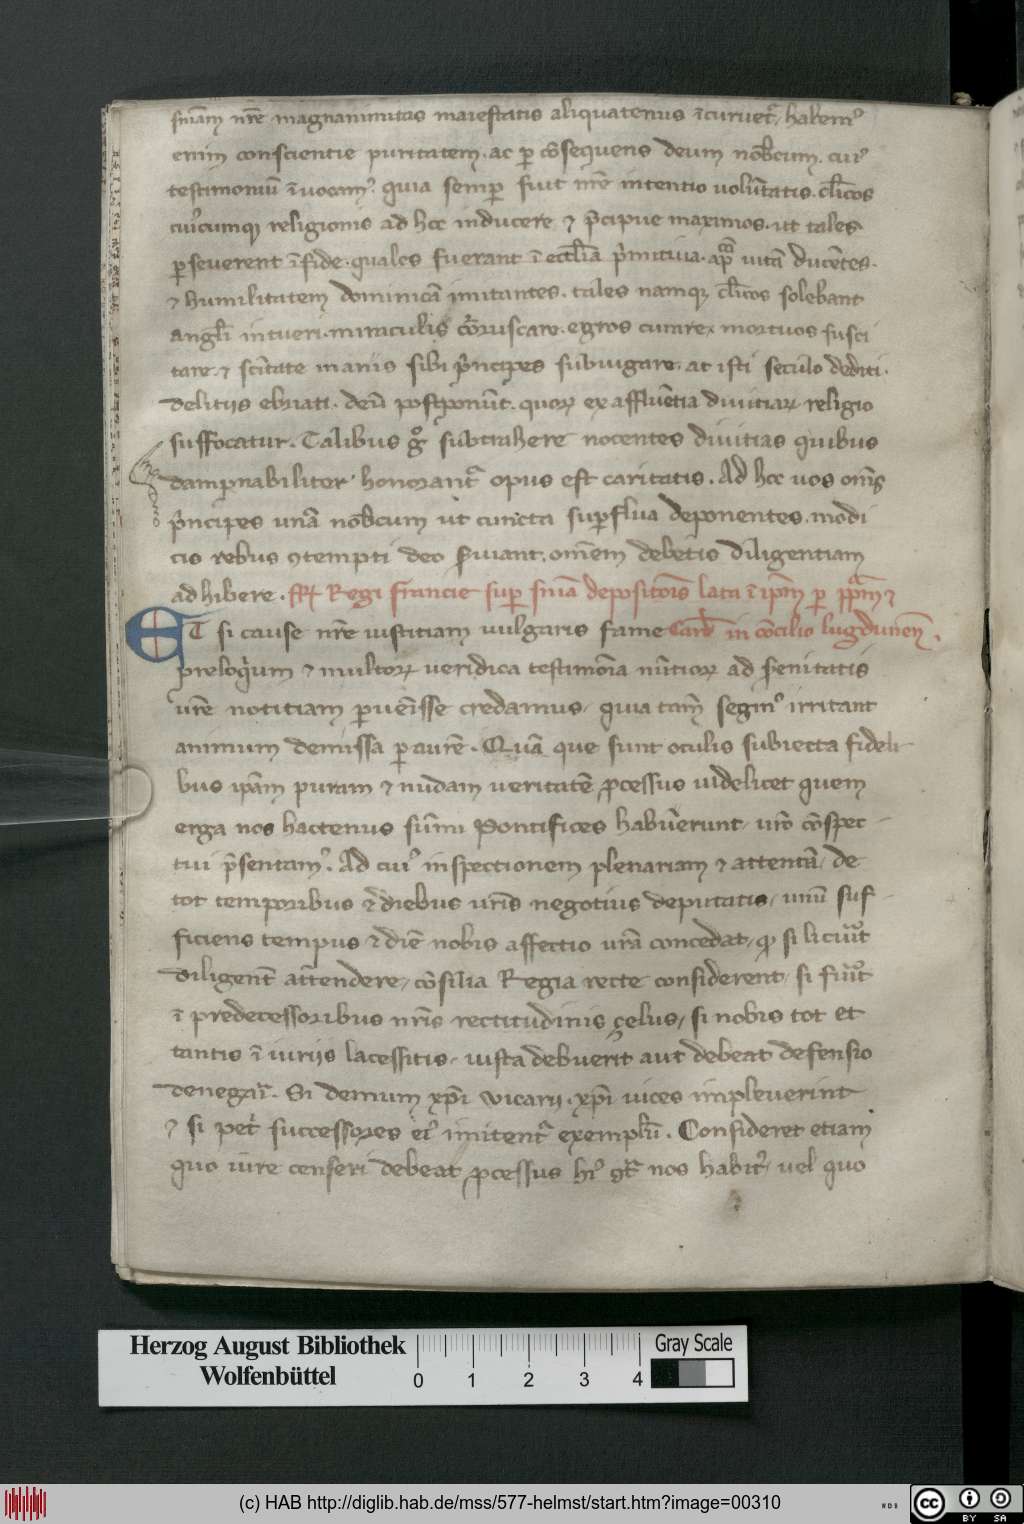 sniam nr̄e magnanimitas maiestatis aliquatenus īcuruet᷑, habem⁹
enim conscientie puritatem . ac ꝑ cōsequens deum nobcum . cui⁹
testimoniū īuocam⁹ . quia semꝑ fuit nr̄e intentio uolūtatis . cl̄icos
cui⁹cumqꝫ religionis ad hec inducere ⁊ p̄cipue maximos . ut tales
ꝑseuerent ī fide . quales fuerant ī eccl̄ia p̄mitiua . ap̄licā uitā ducētes .
⁊ humilitatem dominicā imitantes . tales namqꝫ cl̄icos solebant
angl̄i intueri . miraculis coruscare . egros curare , mortuos susci
tare . ⁊ sc̄itate non armis sibi p̄ncipes subiugare . at isti seculo dediti .
delitiis ebriati . deū postponūt . quoꝝ ex affluētia diuitiaꝝ religio
suffocatur . Talibus gͦ subtrahere nocentes diuitias quibus
dampnabiliter honorant᷑ opus est caritatis . Ad hec uos om̄s
p̄ncipes unā nobcum ut cuncta suꝑflua deponentes . modi
cis rebus ꝯtempti deo s̄uiant . om̄em debetis diligentiam
adhibere . ffr̄ Regi francie suꝑ sn̄ia depositōis lata ī ip̄m ꝑ pp̄am ⁊
ET si cause nr̄e iustitiam uulgaris fame Card̄ in cōcilio lugdunen̄ .
preloquium ⁊ multoꝝ ueridica testimōia nūtioꝝ ad s̄enitatis
ur̄e notitiam ꝑuēisse credamus , quia tam̄ segni⁹ irritant
animum demissa ꝑ aurē . Quā que sunt oculis subiecta fideli
bus ip̄am puram ⁊ nudam ueritatē ꝓcessus uidelicet quem
erga nos hactenus sūmi Pontifices habūerunt , ur̄o cōspec
tui p̄sentam⁹ . Ad cui⁹ inspectionem plenariam ⁊ attentā , de
tot temporibus ⁊ diebus ur̄is negotiis deputatis , unū suf
ficiens tempus ⁊ diē nobis affectio ur̄a concedat , ꝙ si licuīt
diligent̄ attendere , cōsilia Regia recte considerent , si fuīt
ī predecessoribus nr̄is rectitudinis çelus , si nobis tot et
tantis ī iuriis lacessitis , iusta debuerit aut debeat defensio
denegar̄i . Si demum xp̄i uicarii . xp̄i uices impleuerint
⁊ si pet̄ successores ei⁹ imitent᷑ exemplū . Consideret etiam
quo iure censeri debeat ꝓcessus hi⁹ 9t̄ nos habit⁹ , uel quo
Herzog August Bibliothek
Wolfenbüttel
0 1 2 3 4
Gray Scale
(c) HAB http://diglib.hab.de/mss/577-helmst/start.htm?image=00310
WDB
cc BY SA